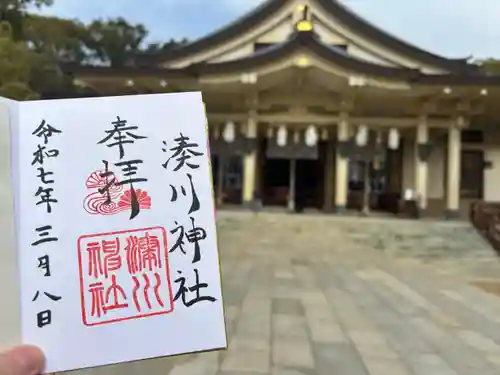 湊川神社
奉拝
湊川神社
令和七年三月八日